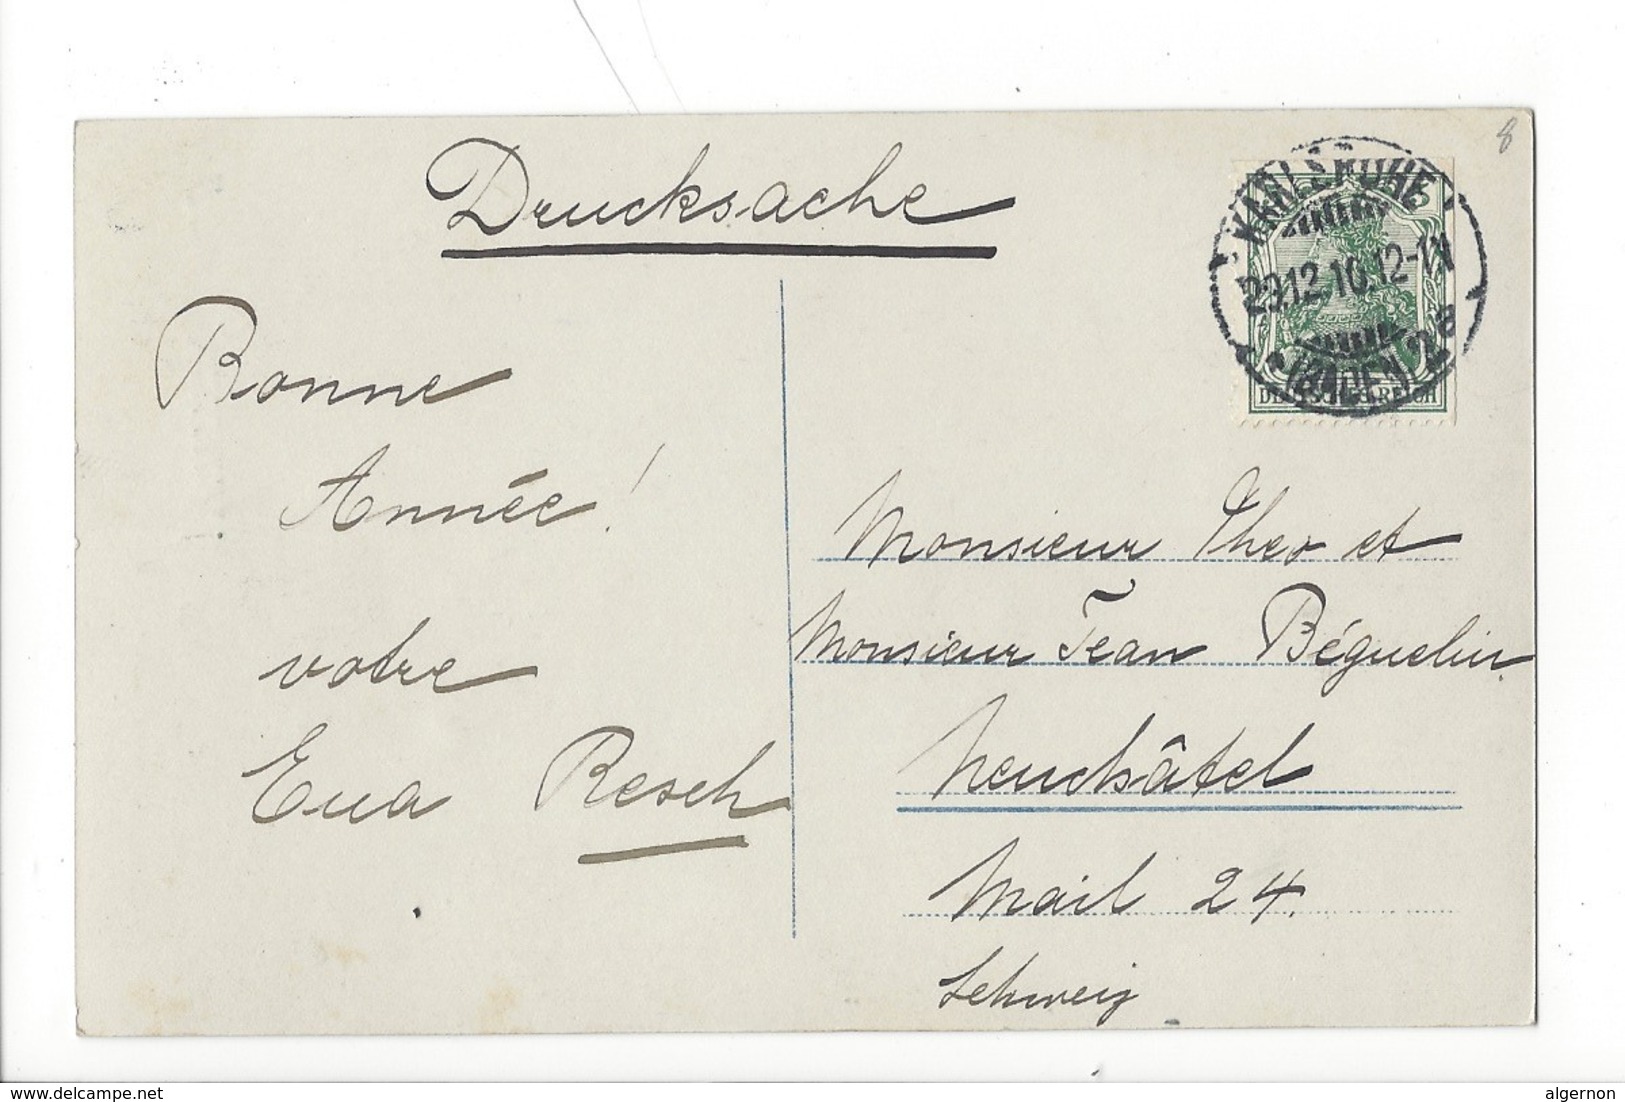 Drucksache
8
KARLSRUHE
29.12.10.12-1N
(BADEN) 2
5
DEUTSCHES REICH
Bonne
Année!
votre
Eva Resch
Monsieur Theo et
Monsieur Jean Béguelin.
Neuchâtel
Mail 24.
Schweiz
delcampe.net
algernon